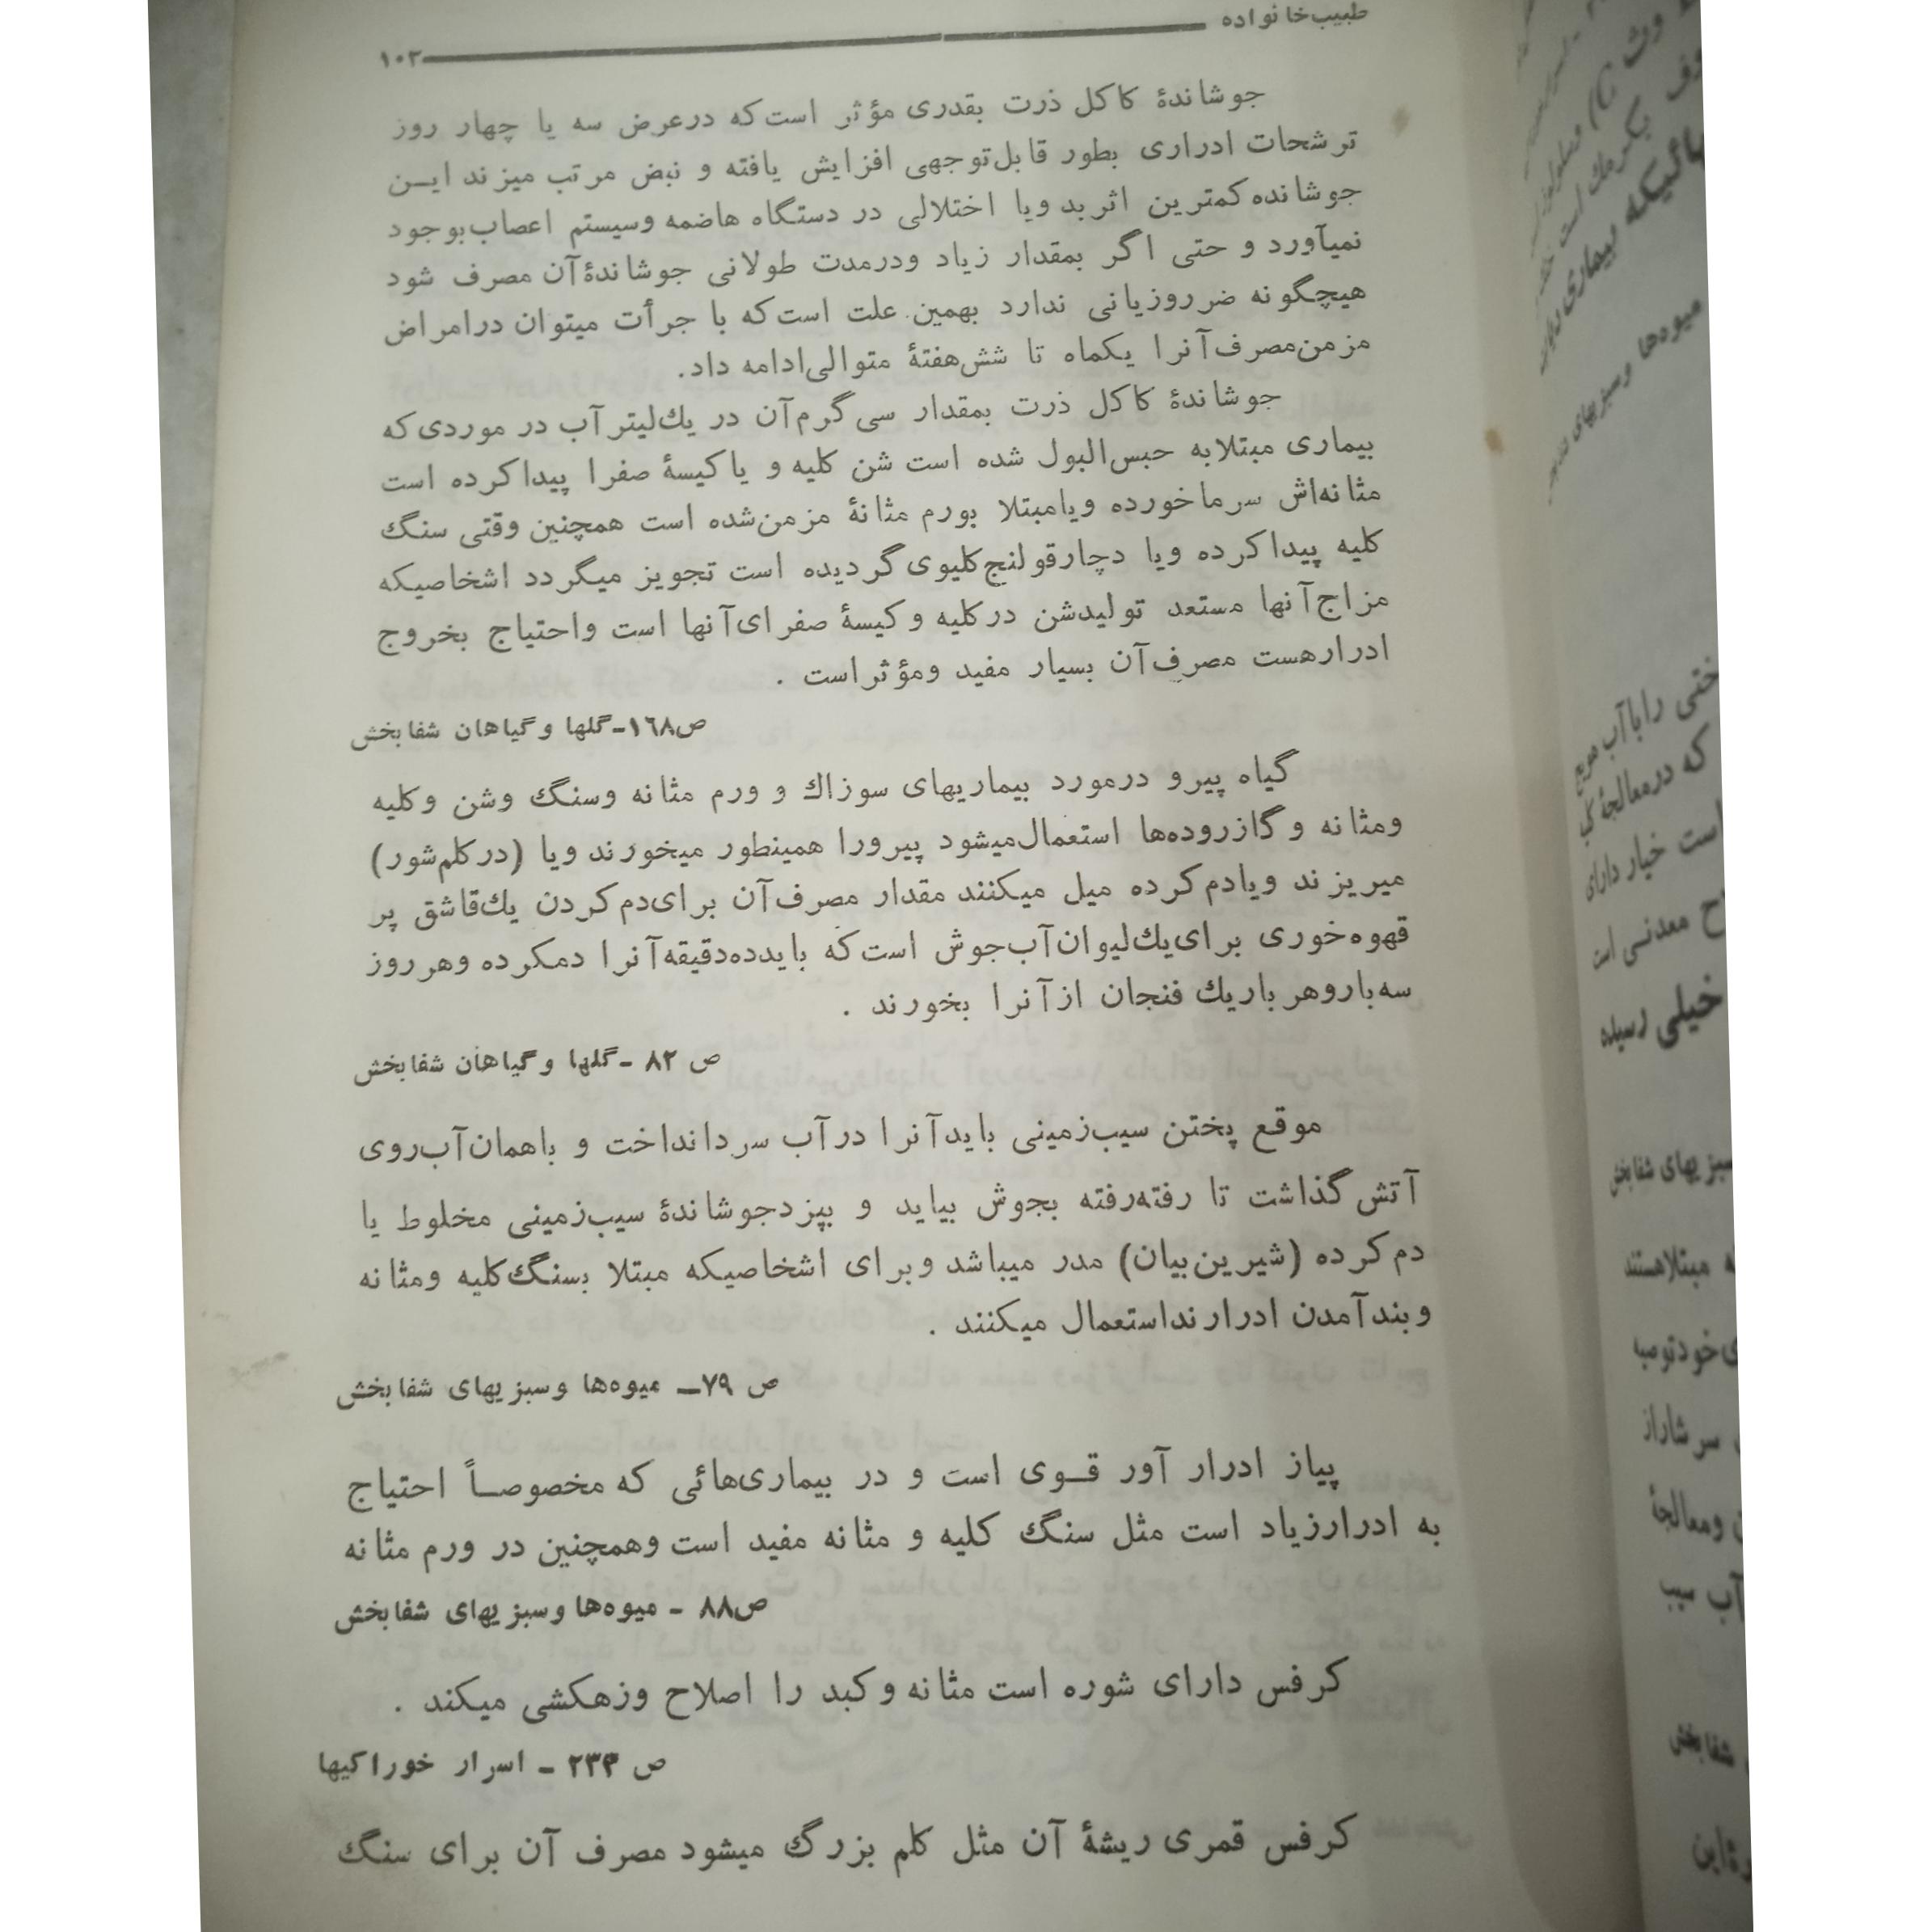 طبیب‌خانواده ۱۰۳
جوشاندهٔ کاکل ذرت بقدری مؤثر است‌که درعرض سه یا چهار روز
ترشحات ادراری بطور قابل‌توجهی افزایش یافته و نبض مرتب میزند ایـن
جوشانده‌کمترین اثربد ویا اختلالی در دستگاه هاضمه وسیستم اعصاب‌بوجود
نمیآورد و حتی اگر بمقدار زیاد ودرمدت طولانی جوشاندهٔ‌آن مصرف شود
هیچگونه ضرروزیانی ندارد بهمین علت است‌که با جرأت میتوان درامراض
مزمن‌مصرف‌آنرا یکماه تا شش‌هفتهٔ متوالی‌ادامه داد.
جوشاندهٔ کاکل ذرت بمقدار سی گرم‌آن در یك‌لیترآب در موردی‌که
بیماری مبتلابه حبس‌البول شده است شن کلیه و یاکیسهٔ صفرا پیداکرده است
مثانه‌اش سرماخورده ویامبتلا بورم مثانهٔ مزمن‌شده است همچنین وقتی سنگ
کلیه پیداکرده ویا دچارقولنج‌کلیوی‌گردیده است تجویز میگردد اشخاصیکه
مزاج‌آنها مستعد تولیدشن درکلیه وکیسهٔ صفرای‌آنها است واحتیاج بخروج
ادرارهست مصرف‌آن بسیار مفید ومؤثراست .
ص۱۶۸-گلها وگیاهان شفابخش
گیاه پیرو درمورد بیماریهای سوزاك و ورم مثانه وسنگ وشن وکلیه
ومثانه وگازروده‌ها استعمال‌میشود پیرورا همینطور میخورند ویا (درکلم‌شور)
میریزند ویادم‌کرده میل میکنند مقدار مصرف‌آن برای‌دم‌کردن یك‌قاشق پر
قهوه‌خوری برای‌یك‌لیوان‌آب‌جوش است‌که بایدده‌دقیقه‌آنرا دمکرده وهرروز
سه‌باروهرباریك فنجان ازآنرا بخورند .
ص ۸۲ -گلها وگیاهان شفابخش
موقع پختن سیب‌زمینی بایدآنرا درآب سردانداخت و باهمان‌آب‌روی
آتش‌گذاشت تا رفته‌رفته بجوش بیاید و بپزدجوشاندهٔ سیب‌زمینی مخلوط یا
دم‌کرده (شیرین‌بیان) مدر میباشد وبرای اشخاصیکه مبتلا بسنگ‌کلیه ومثانه
وبندآمدن ادرارنداستعمال میکنند .
ص ۷۹ــ میوه‌ها وسبزیهای شفابخش
پیاز ادرار آور قـوی است و در بیماری‌هائی که مخصوصـاً احتیاج
به ادرارزیاد است مثل سنگ کلیه و مثانه مفید است وهمچنین در ورم مثانه
ص۸۸ - میوه‌ها وسبزیهای شفابخش
کرفس دارای شوره است مثانه وکبد را اصلاح وزهکشی میکند .
ص ۲۳۳ - اسرار خوراکیها
کرفس قمری ریشهٔ آن مثل کلم بزرگ میشود مصرف آن برای سنگ
میوه‌ها وسبزیهای
ختی راباآب هویج
که درمعالجهٔ
است خیار دارای
معدنـی است
خیلی رسیده
سبزیهای شفابخش
مبتلاهستند
سرشاراز
ومعالجهٔ
آب سیب
شفابخش